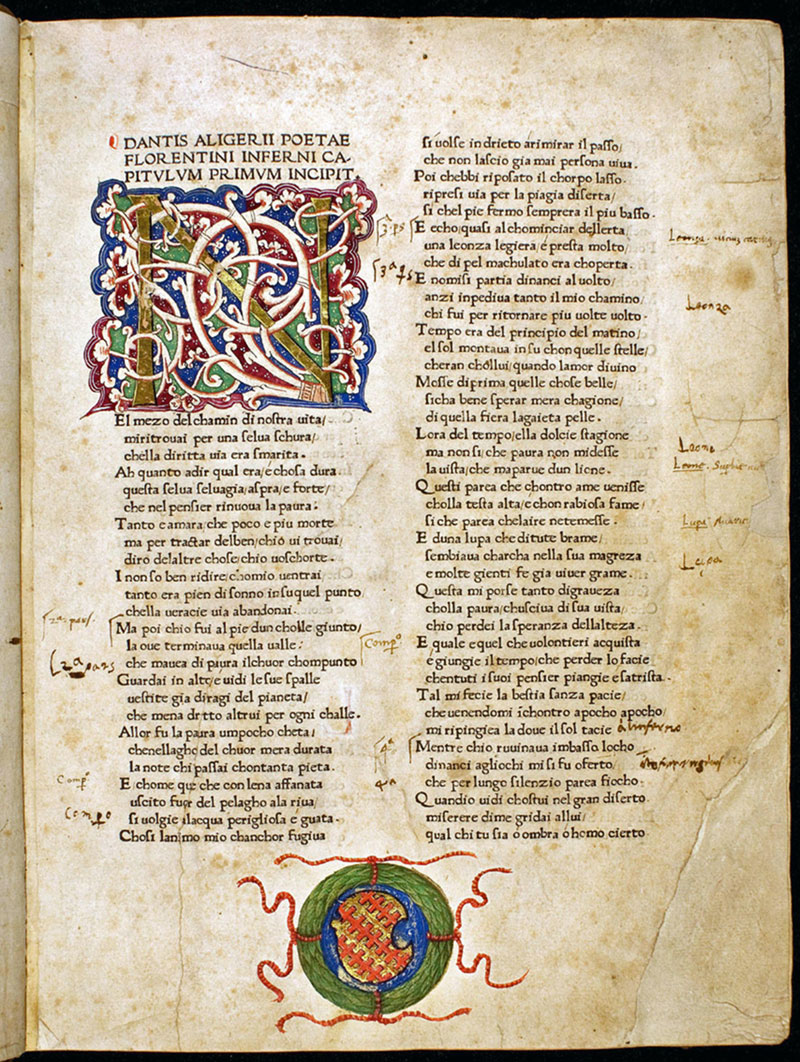 DANTIS ALIGERII POETAE
FLORENTINI INFERNI CA-
PITVLVM PRIMVM INCIPIT.
N
El mezo del chamin di nostra uita/
miritrouai per una selua schura/
chella diritta uia era smarita.
Ah quanto adir qual era/e chosa dura
questa selua seluagia/aspra/e forte/
che nel pensier rinuoua la paura:
Tanto e amara/che poco e piu morte
ma per tractar delben/chio ui trouai/
diro delaltre chose/chio uoschorte.
I non so ben ridire/chomio uentrai
tanto era pien di sonno insuquel punto
chella ueracie uia abandonai.
Ma poi chio fui al pie dun cholle giunto/
la oue terminaua quella ualle:
che mauea di paura ilchuor chompunto
Guardai in alto/e uidi le sue spalle
uestite gia diragi del pianeta/
che mena dritto altrui per ogni challe.
Allor fu la paura umpocho cheta/
chenellagho del chuor mera durata
la note chi passai chontanta pieta.
E chome que che con lena affanata
uscito fuor del pelagho ala riua/
si uolgie ilacqua perigliosa e guata.
Chosi lanimo mio chanchor fugiua
si uolse indrieto arimirar il passo/
che non lascio gia mai persona uiua.
Poi chebbi riposato il chorpo lasso.
ripresi uia per la piagia diserta/
si chel pie fermo semprera il piu basso.
E echo/quasi al chominciar dellerta
una leonza legiera/e presta molto/
che di pel machulato era choperta.
E nomisi partia dinanci al uolto/
anzi inpediua tanto il mio chamino/
chi fui per ritornare piu uolte uolto.
Tempo era del principio del matino/
el sol montaua insu chon quelle stelle/
cheran chollui/quando lamor diuino
Mosse diprima quelle chose belle/
sicha bene sperar mera chagione/
di quella fiera lagaieta pelle.
Lora del tempo/ella dolcie stagione
ma non si/che paura non midesse
la uista/che maparue dun lione.
Questi parea che chontro ame uenisse
cholla testa alta/e chon rabiosa fame/
si che parea chelaire netemesse.
E duna lupa che ditute brame/
sembiaua charcha nella sua magreza
e molte gienti fe gia uiuer grame.
Questa mi porse tanto digraueza
cholla paura/chusciua di sua uista/
chio perdei la speranza dellalteza.
E quale e quel che uolontieri acquista
e giungie il tempo/che perder lo facie
chentuti i suoi pensier piangie e satrista.
Tal mi fecie la bestia sanza pacie/
che uenendomi inchontro apocho apocho/
mi ripingica la doue il sol tacie
Mentre chio ruuinaua imbasso locho
dinanci agliochi mi si fu oferto
che per lungo silenzio parea fiocho.
Quandio uidi chostui nel gran diserto
miserere dime gridai allui/
qual chi tu sia o ombra o homo cierto
Leonza
Leone
Lupa
Comp°